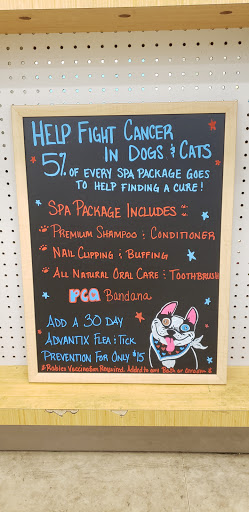 Help Fight Cancer
in Dogs & Cats
5% of every spa package goes
to help finding a cure!
Spa Package Includes:
Premium Shampoo & Conditioner
Nail Clipping & Buffing
All Natural Oral Care & Toothbrush
PCA Bandana
Add a 30 day
Advantix Flea & Tick
Prevention for only $15
Rabies Vaccination Required. Added to any Bath or Groom